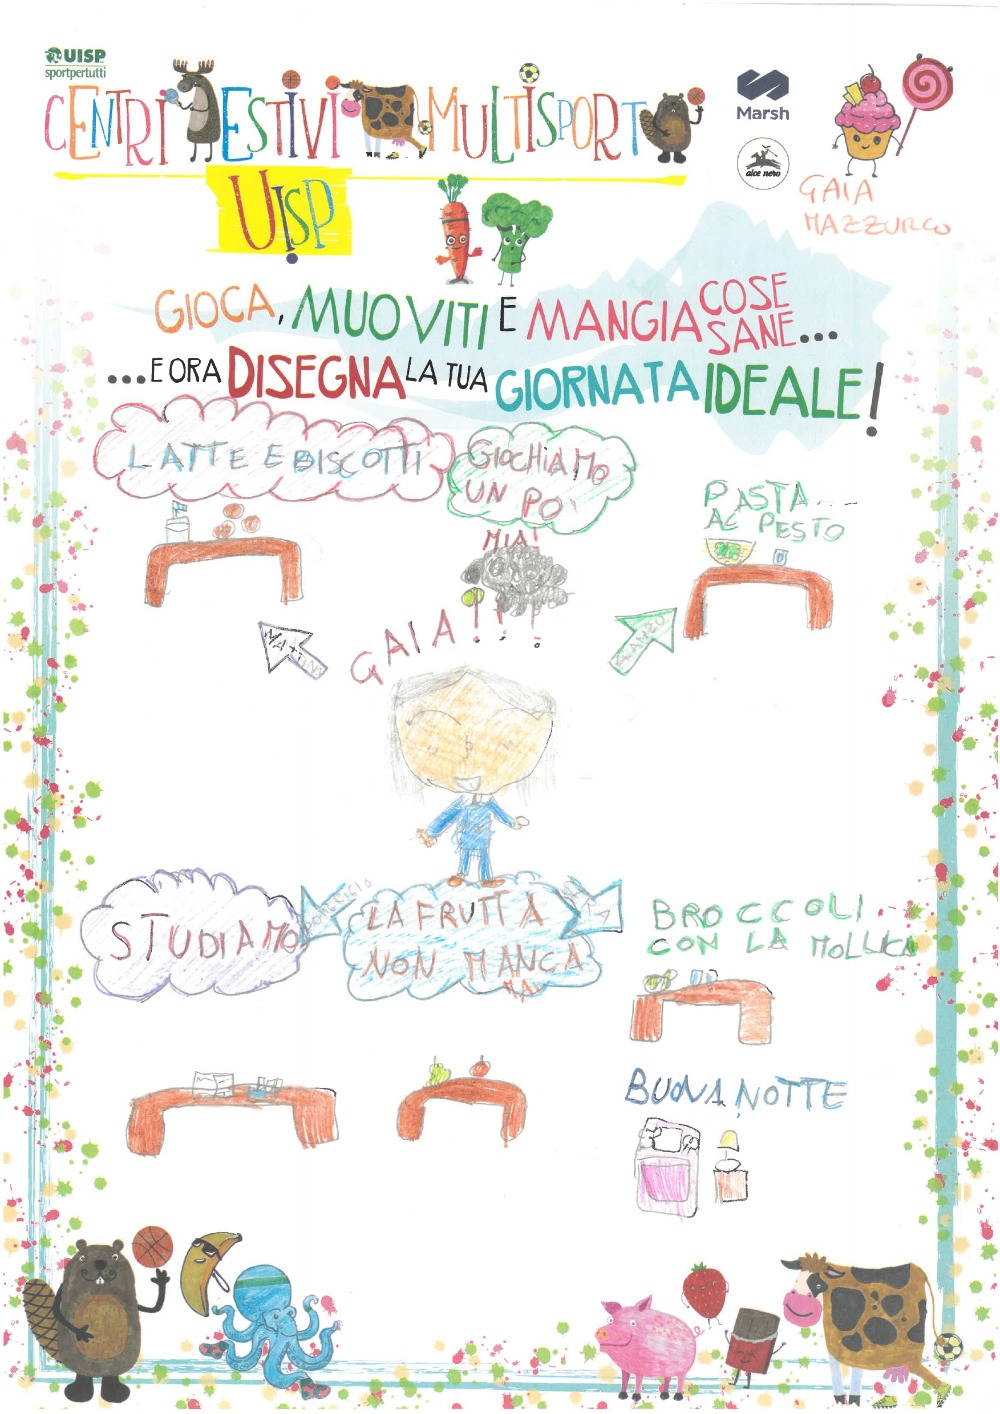 UISP
sportpertutti
CENTRI ESTIVI MULTISPORT
UISP
Marsh
alce nero
GAIA
MAZZURCO
GIOCA, MUOVITI E MANGIA COSE SANE...
...E ORA DISEGNA LA TUA GIORNATA IDEALE!
LATTE E BISCOTTI
GIOCHIAMO
UN PO'
MIA!
PASTA....
AL PESTO
MATTINA
GAIA!!!
PRANZO
POMERIGGIO
STUDIAMO
LA FRUTTA
NON MANCA
MAI
BROCCOLI
CON LA MOLLICA
BUONA NOTTE